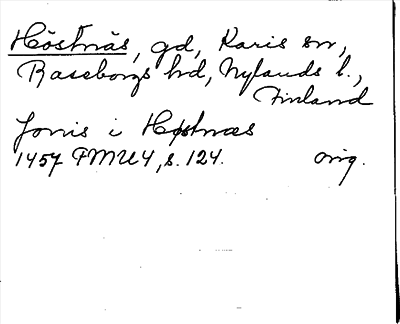 Höstnäs, gd, Karis sn,
Raseborgs hd, Nylands l.,
Finland
Jonis i Høstnæs
1457 FMU 4, s. 124. orig.